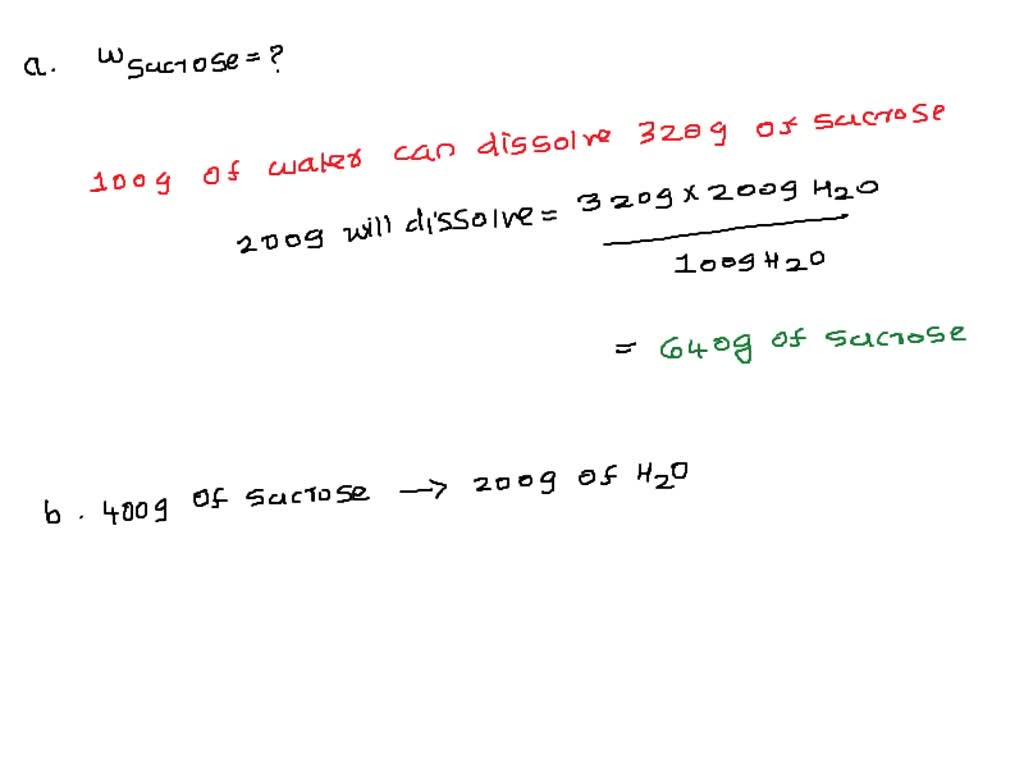 a. Wsucrose = ?
100g of water can dissolve 320g of sucrose
200g will dissolve = 320g x 200g H2O
100g H2O
= 640g of sucrose
b. 400g of sucrose → 200g of H2O